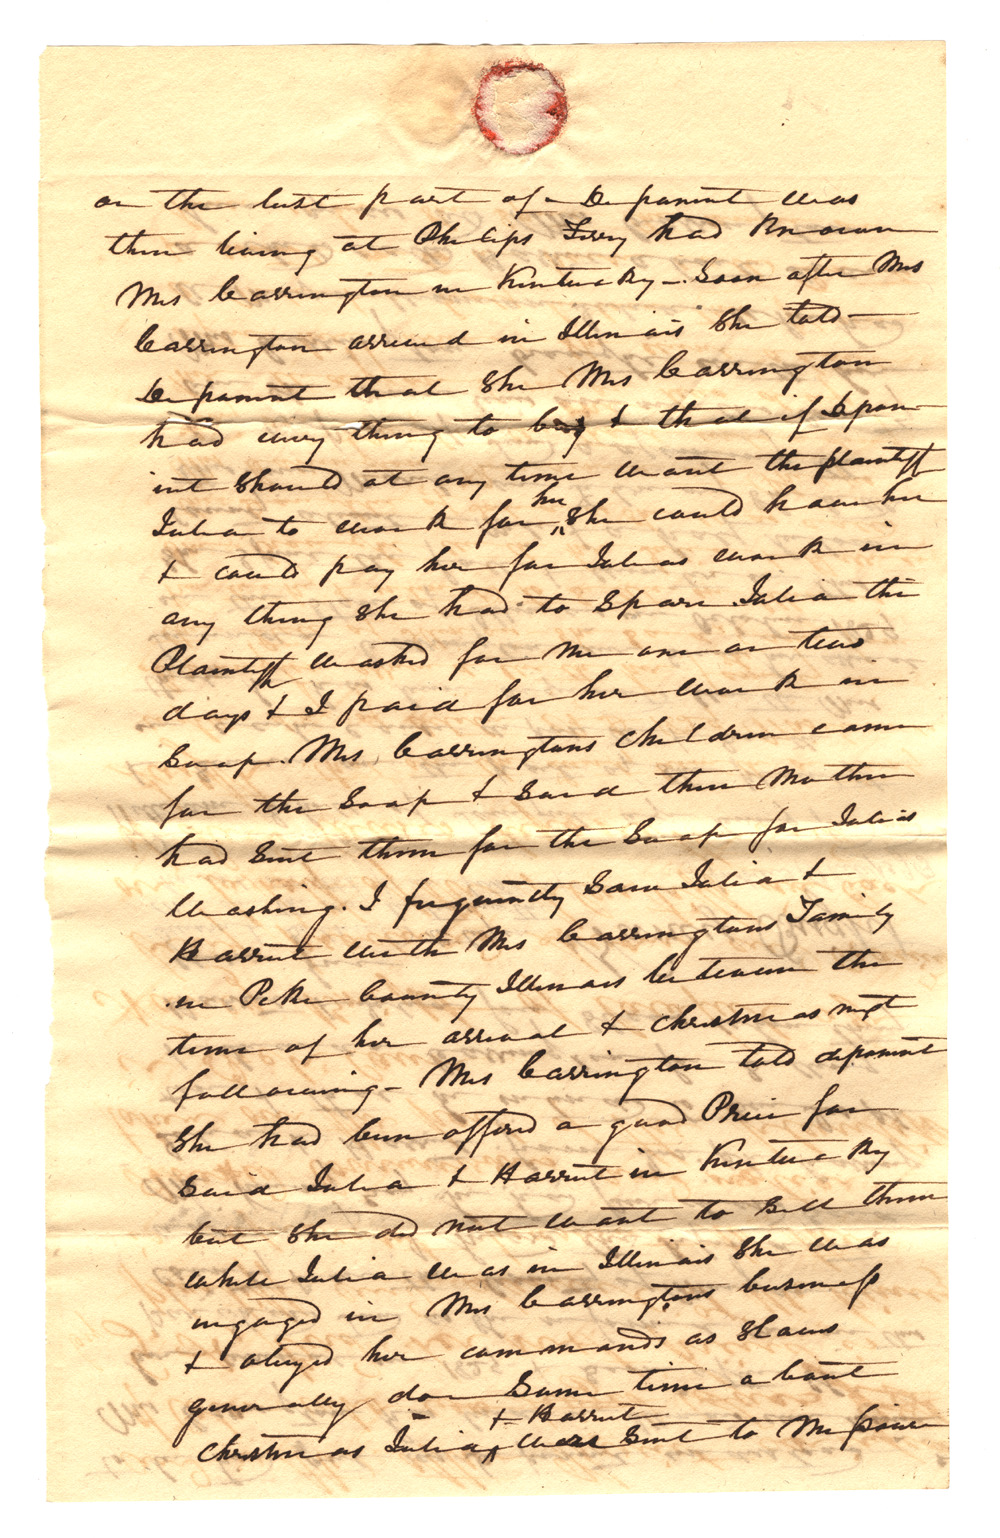 or the last part of - Deponent was
then living at Philips Ferry had known
Mrs Carrington in Kentucky - Soon after Mrs
Carrington arrived in Illinois She told -
Deponent that She Mrs Carrington
had every thing to buy & that if Depon-
ent Should at any time want the plaintiff
Julia to work for her She could have her
& could pay her for Julias work in
any thing She had to Spare. Julia the
Plaintiff washed for me one or two
days & I paid for her work in
Soap. Mrs Carringtons Children came
for the Soap & Said their Mother
had Sent them for the Soap for Julias
washing. I frequently Saw Julia &
Harriet with Mrs Carringtons Family
in Pike County Illinois between the
time of her arrival & christmas next
following - Mrs Carrington told deponent
She had been offered a good Price for
Said Julia & Harriet in Kentucky
but She did not want to Sell them
while Julia was in Illinois She was
engaged in Mrs Carringtons business
& obeyed her commands as Slaves
generally do - Some time about
christmas Julia & Harriet were Sent to Missouri